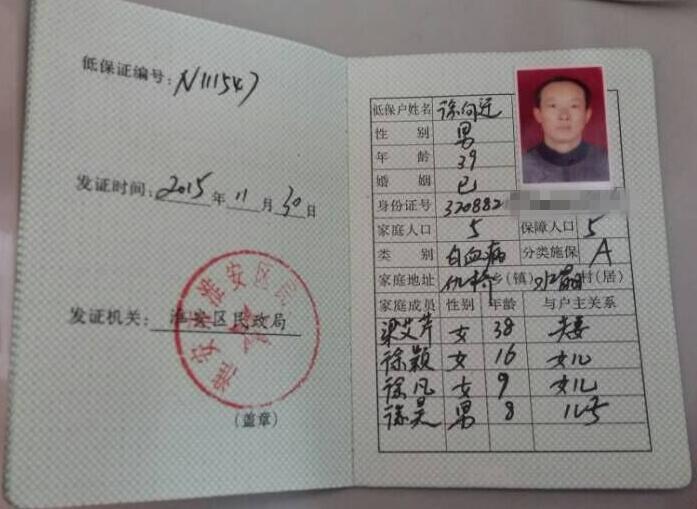 低保证编号: N111547
发证时间: 2015 年 11 月 30 日
发证机关: 淮安区民政局
(盖章)
低保户姓名 徐向近
性别 男
年龄 39
婚姻 已
身份证号 320882
家庭人口 5 保障人口 5
类别 白血病 分类施保 A
家庭地址 仇桥 乡(镇) 村(居)
家庭成员 性别 年龄 与户主关系
梁艾芹 女 38 夫妻
徐颖 女 16 女儿
徐凡 女 9 女儿
徐昊 男 8 儿子